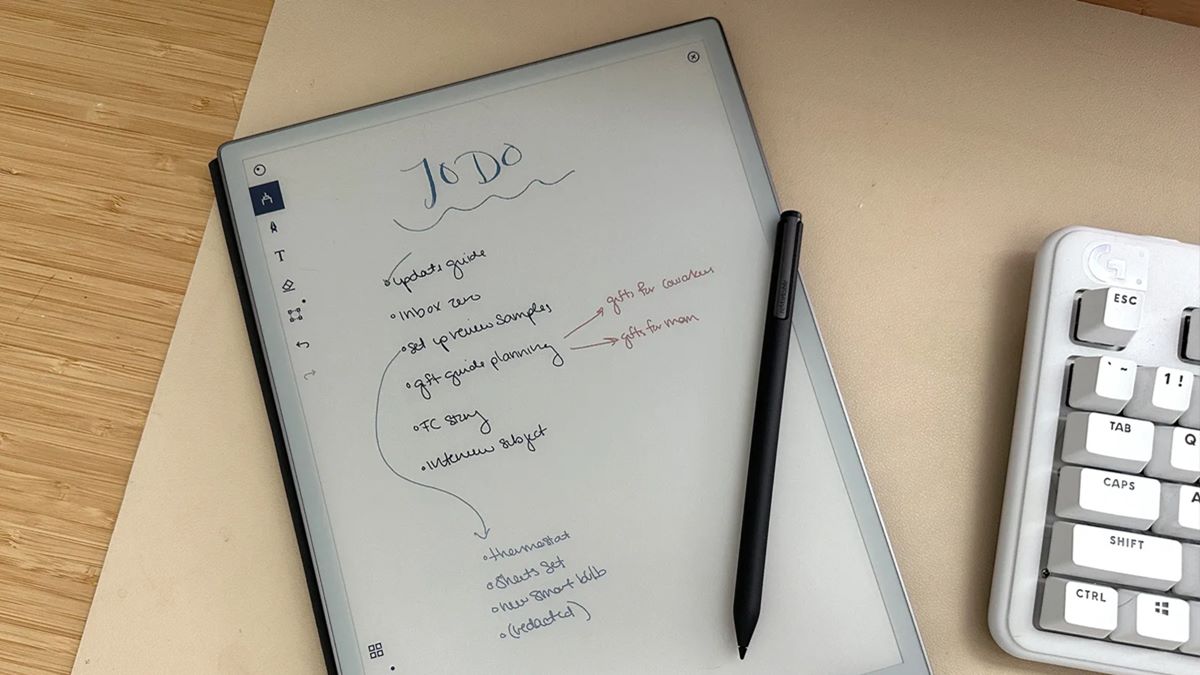 TO DO
update guide
inbox zero
set up review samples
gift guide planning
gifts for coworkers
gifts for mom
FC story
interview subject
thermostat
sheets set
new smart bulb
(redacted)
T
G
ESC
` ~
1 !
TAB
Q
CAPS
A
SHIFT
CTRL